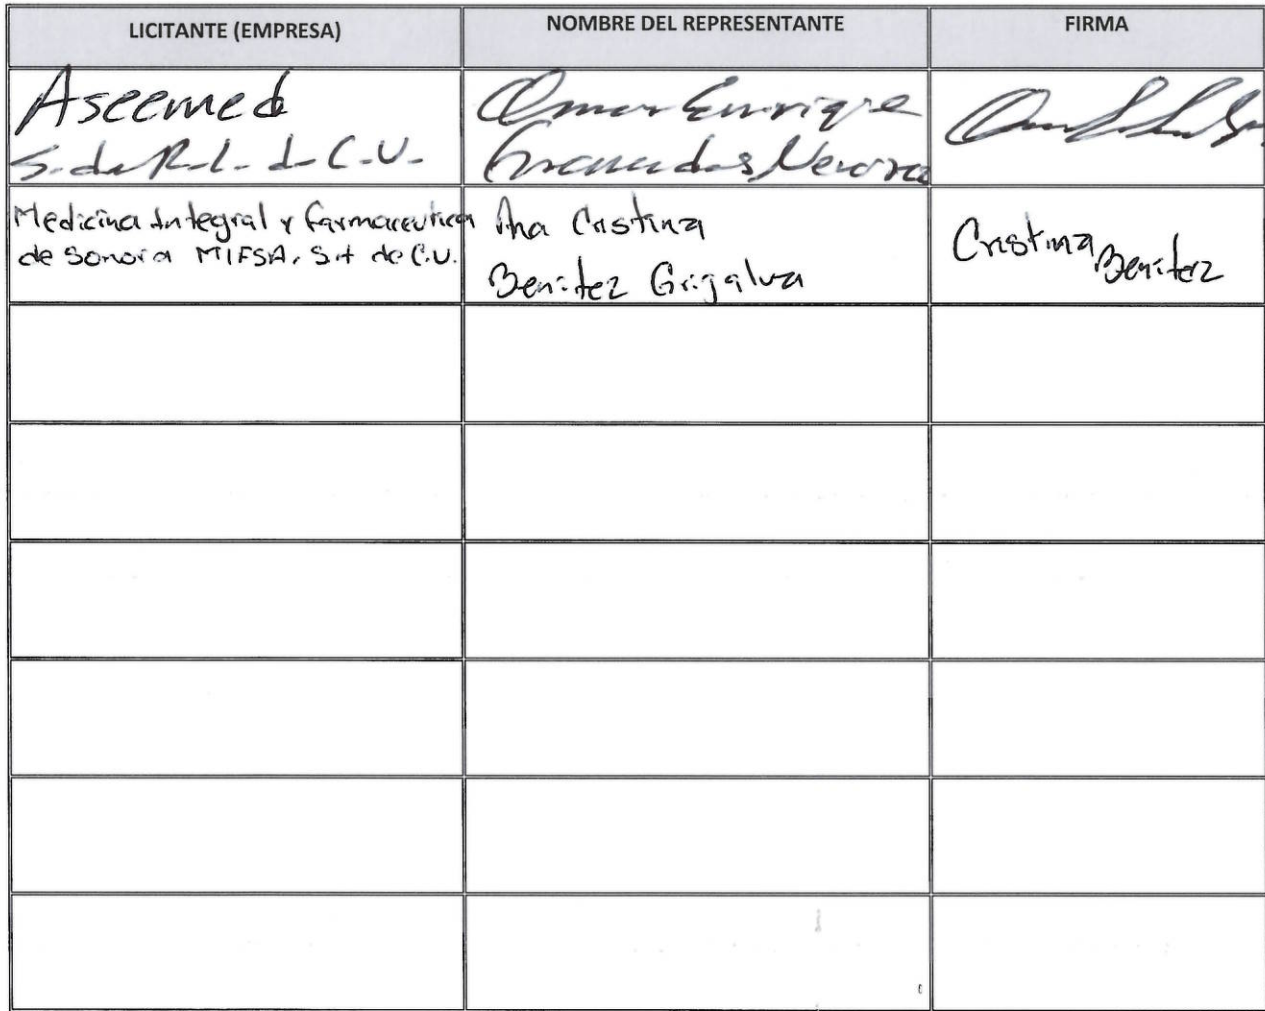 LICITANTE (EMPRESA)
NOMBRE DEL REPRESENTANTE
FIRMA
Aseemed
S. de R.L. de C.V.
Omar Enrique
Granados
Medicina Integral y farmaceutica
de Sonora MIFSA, SA de C.V.
Ana Cristina
Benitez Grijalva
Cristina
Benitez